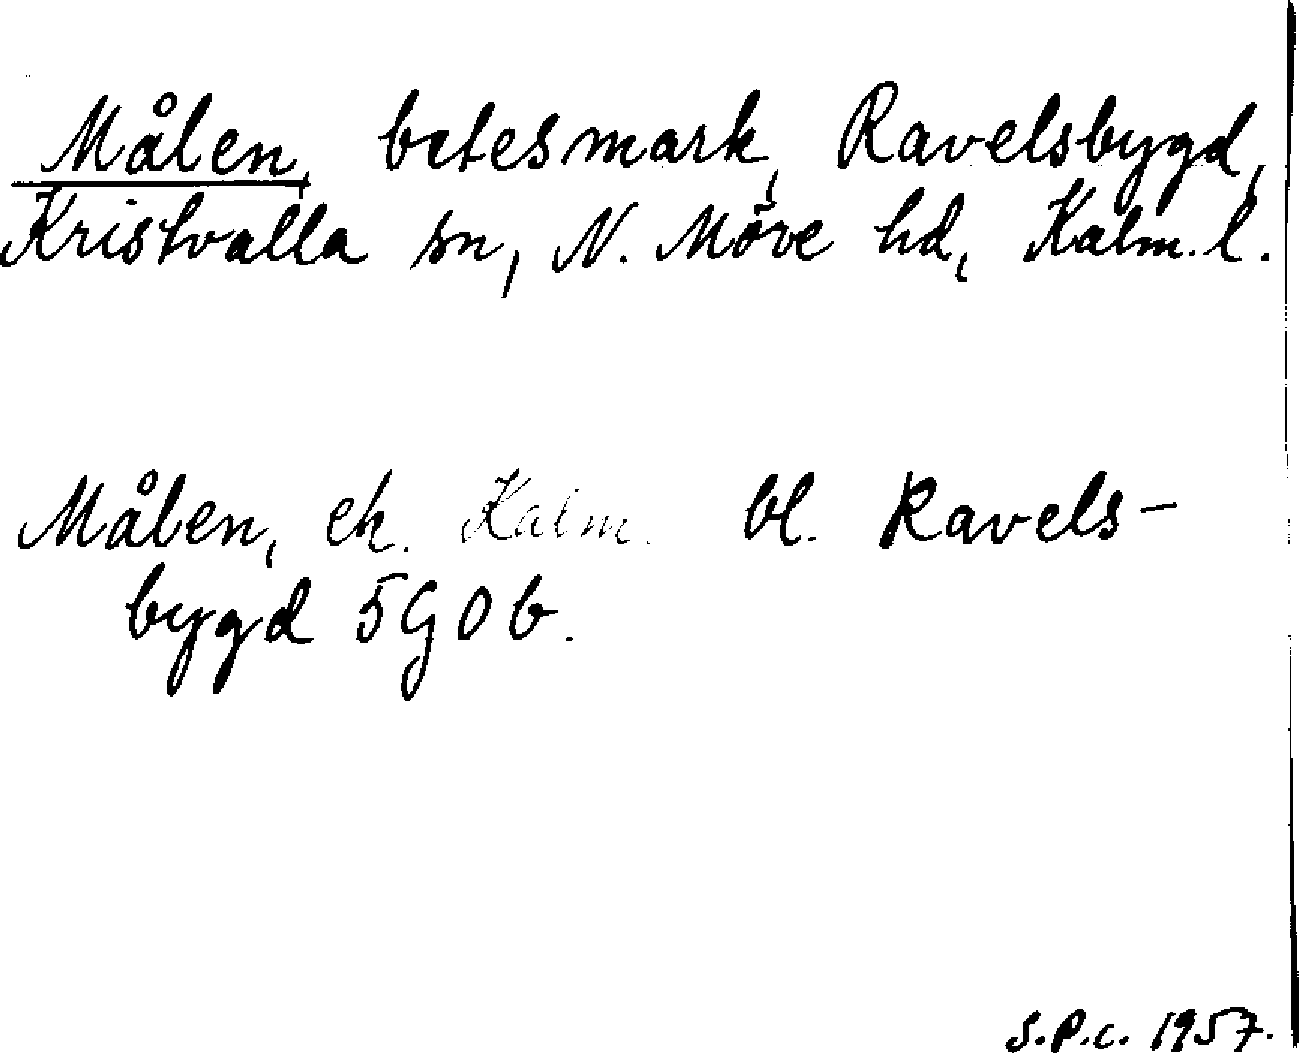 Målen, betesmark, Ravelsbygd,
Kristvalla sn, N. Möre hd, Kalm. l.
Målen, ek. Kalm. bl. Ravels-
bygd 5G0b.
S.P.c. 1957.